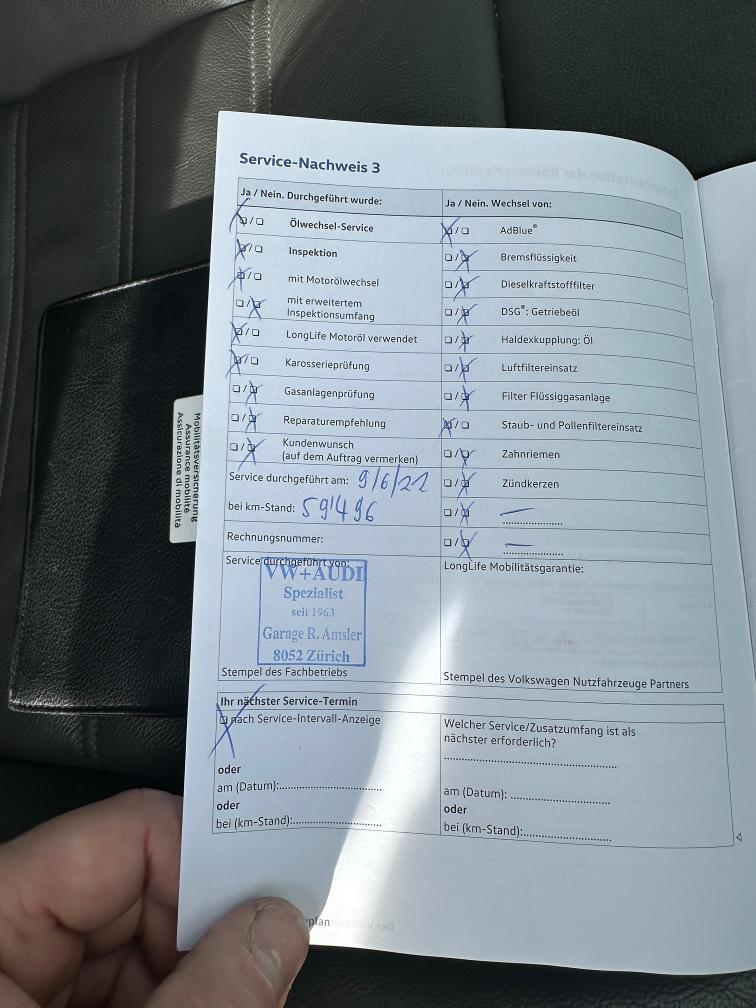 Service-Nachweis 3
Ja / Nein. Durchgeführt wurde:
Ölwechsel-Service
Inspektion
mit Motorölwechsel
mit erweitertem
Inspektionsumfang
LongLife Motoröl verwendet
Karosserieprüfung
Gasanlagenprüfung
Reparaturempfehlung
Kundenwunsch
(auf dem Auftrag vermerken)
Service durchgeführt am: 9/6/21
bei km-Stand: 59'496
Rechnungsnummer:
Service durchgeführt von:
VW+AUDI
Spezialist
seit 1963
Garage R. Amsler
8052 Zürich
Stempel des Fachbetriebs
Ja / Nein. Wechsel von:
AdBlue®
Bremsflüssigkeit
Dieselkraftstofffilter
DSG®: Getriebeöl
Haldexkupplung: Öl
Luftfiltereinsatz
Filter Flüssiggasanlage
Staub- und Pollenfiltereinsatz
Zahnriemen
Zündkerzen
LongLife Mobilitätsgarantie:
Stempel des Volkswagen Nutzfahrzeuge Partners
Ihr nächster Service-Termin
nach Service-Intervall-Anzeige
oder
am (Datum):
oder
bei (km-Stand):
Welcher Service/Zusatzumfang ist als
nächster erforderlich?
am (Datum):
oder
bei (km-Stand):
plan
Mobilitätsversicherung
Assurance mobilité
Assicurazione di mobilità